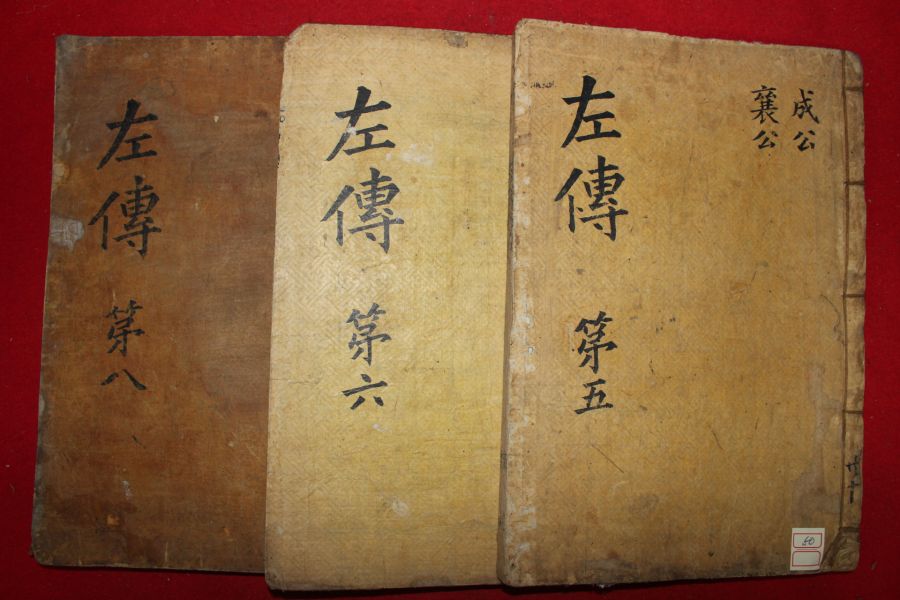 成公
襄公
左傳 第五
50
左傳 第六
左傳 第八